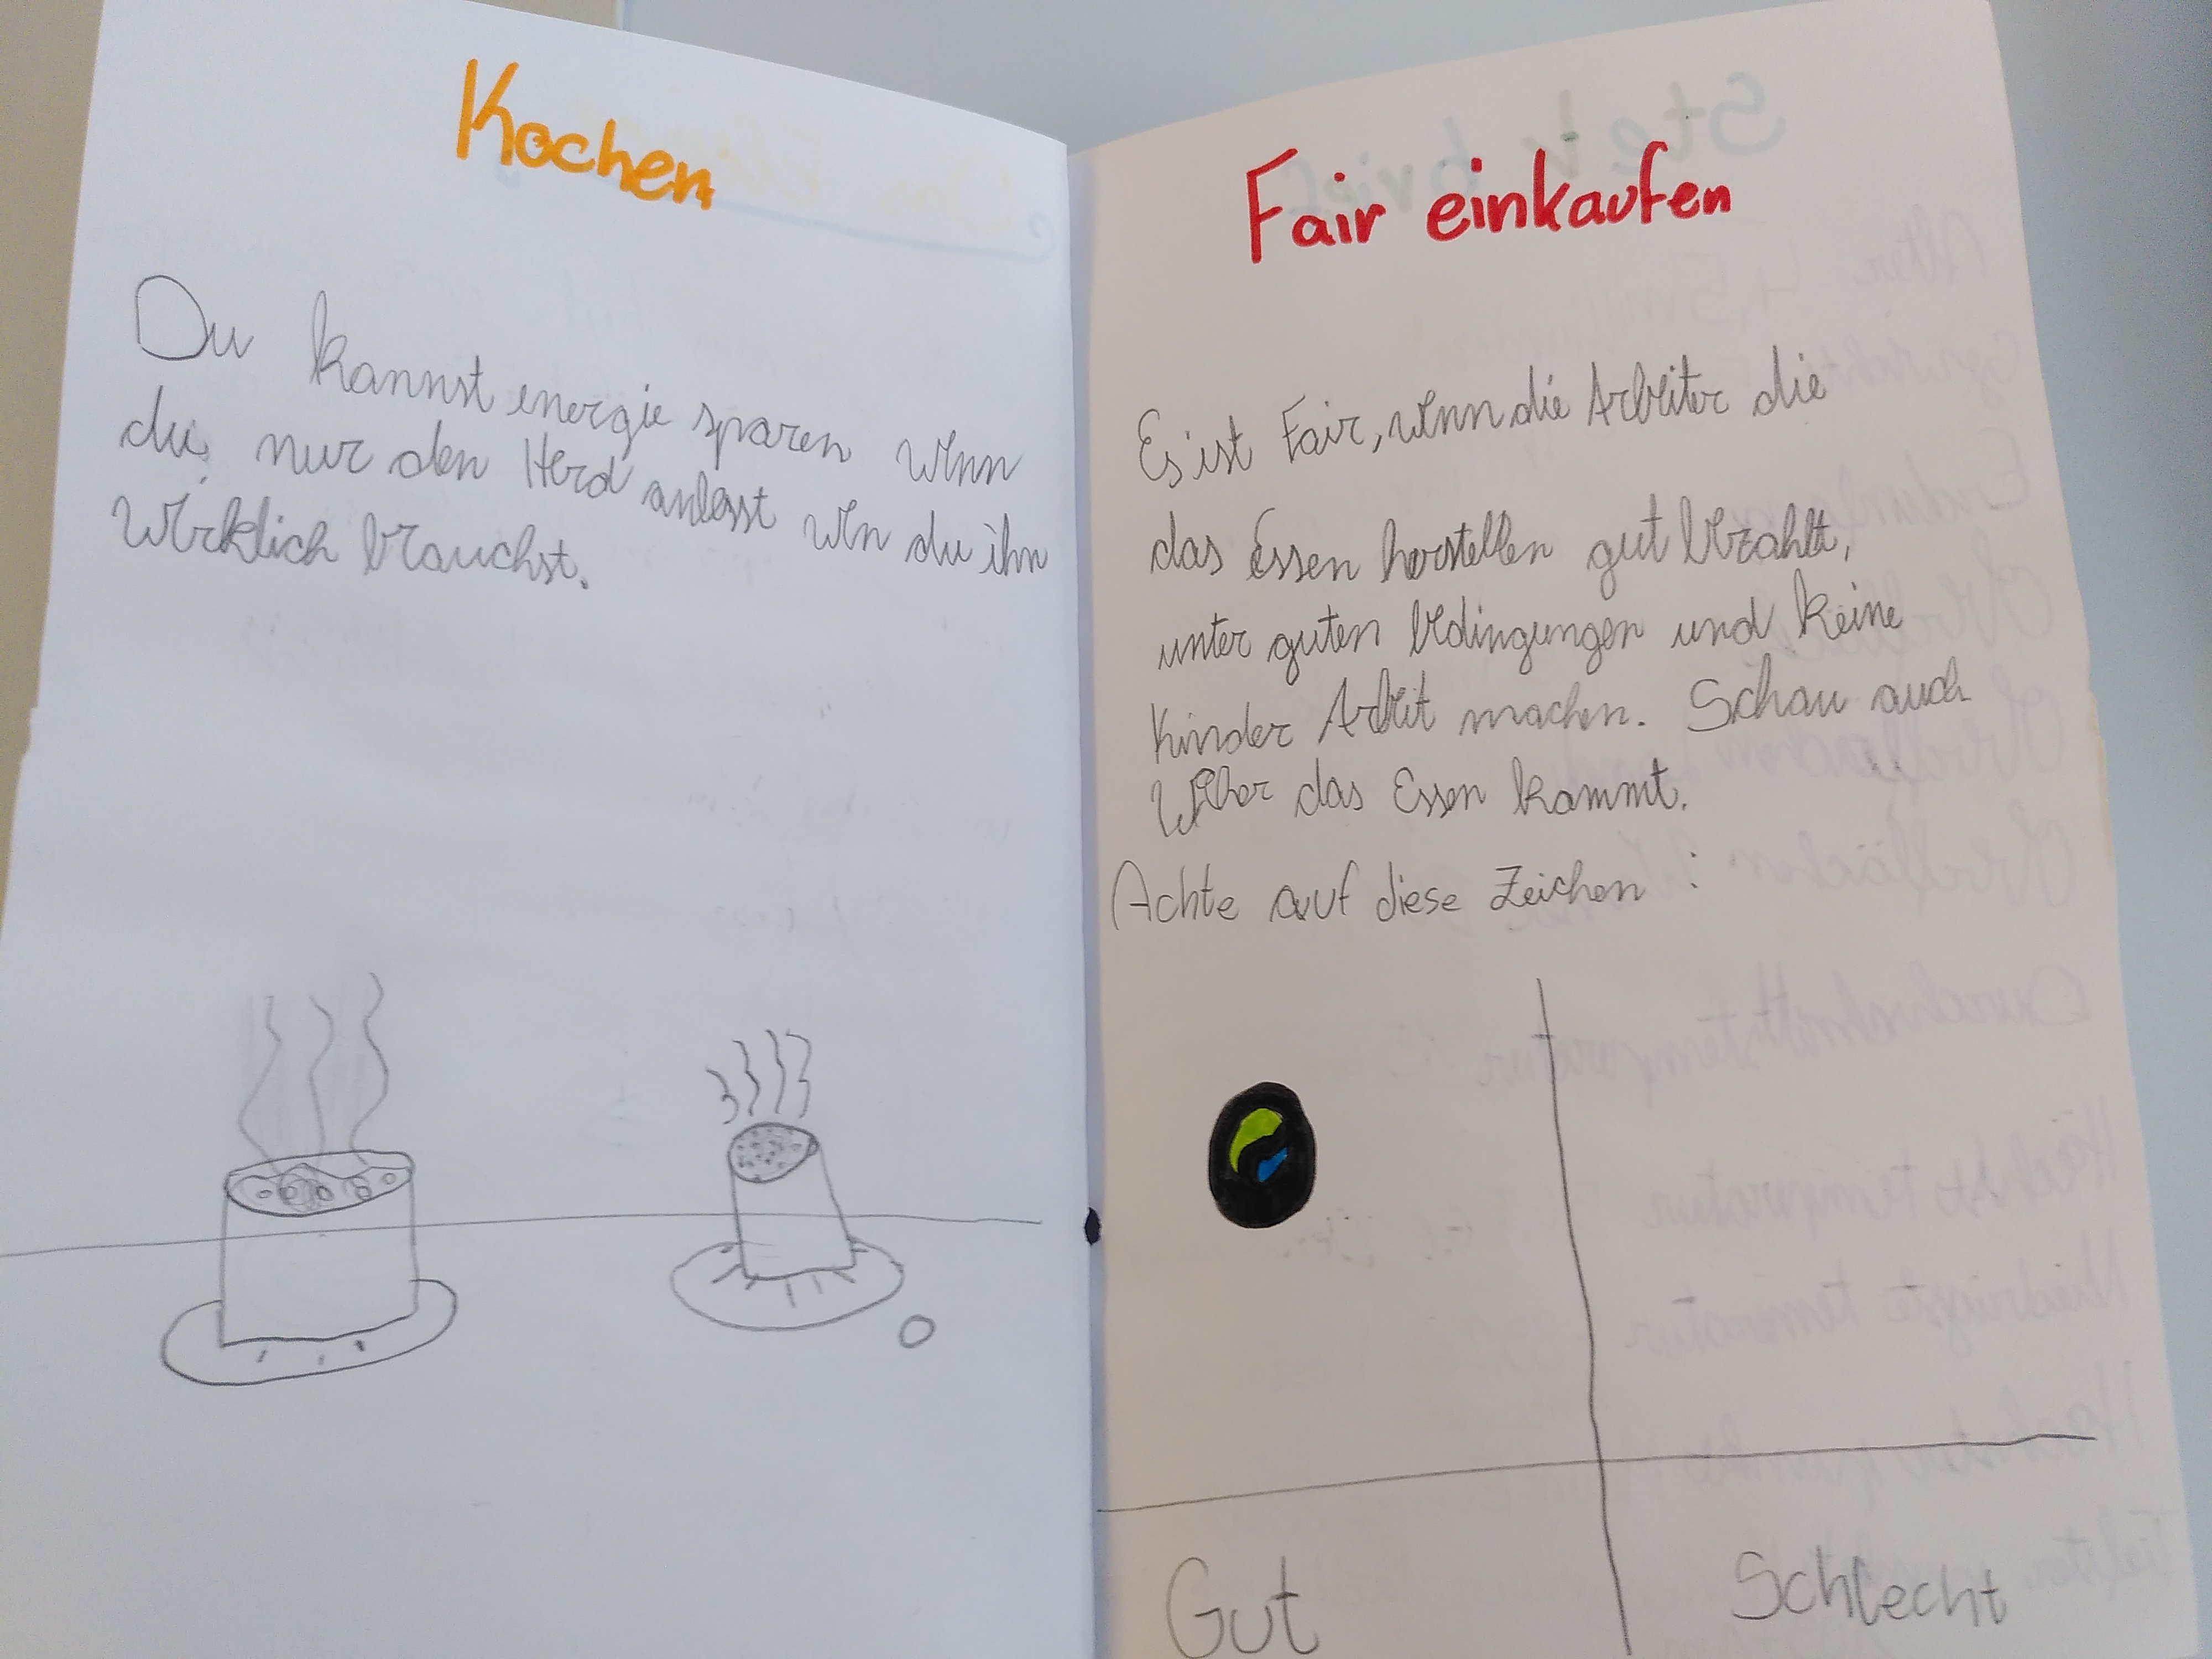 Kochen
Du kannst energie sparen wenn
du nur den Herd anlesst wen du ihn
Wirklich brauchst.
Fair einkaufen
Es ist Fair, wenn die Arbeiter die
das Essen herstellen gut bezahlt,
unter guten bedingungen und keine
Kinder Arbeit machen. Schau auch
Woher das Essen kommt.
Achte auf diese Zeichen :
Gut
Schlecht